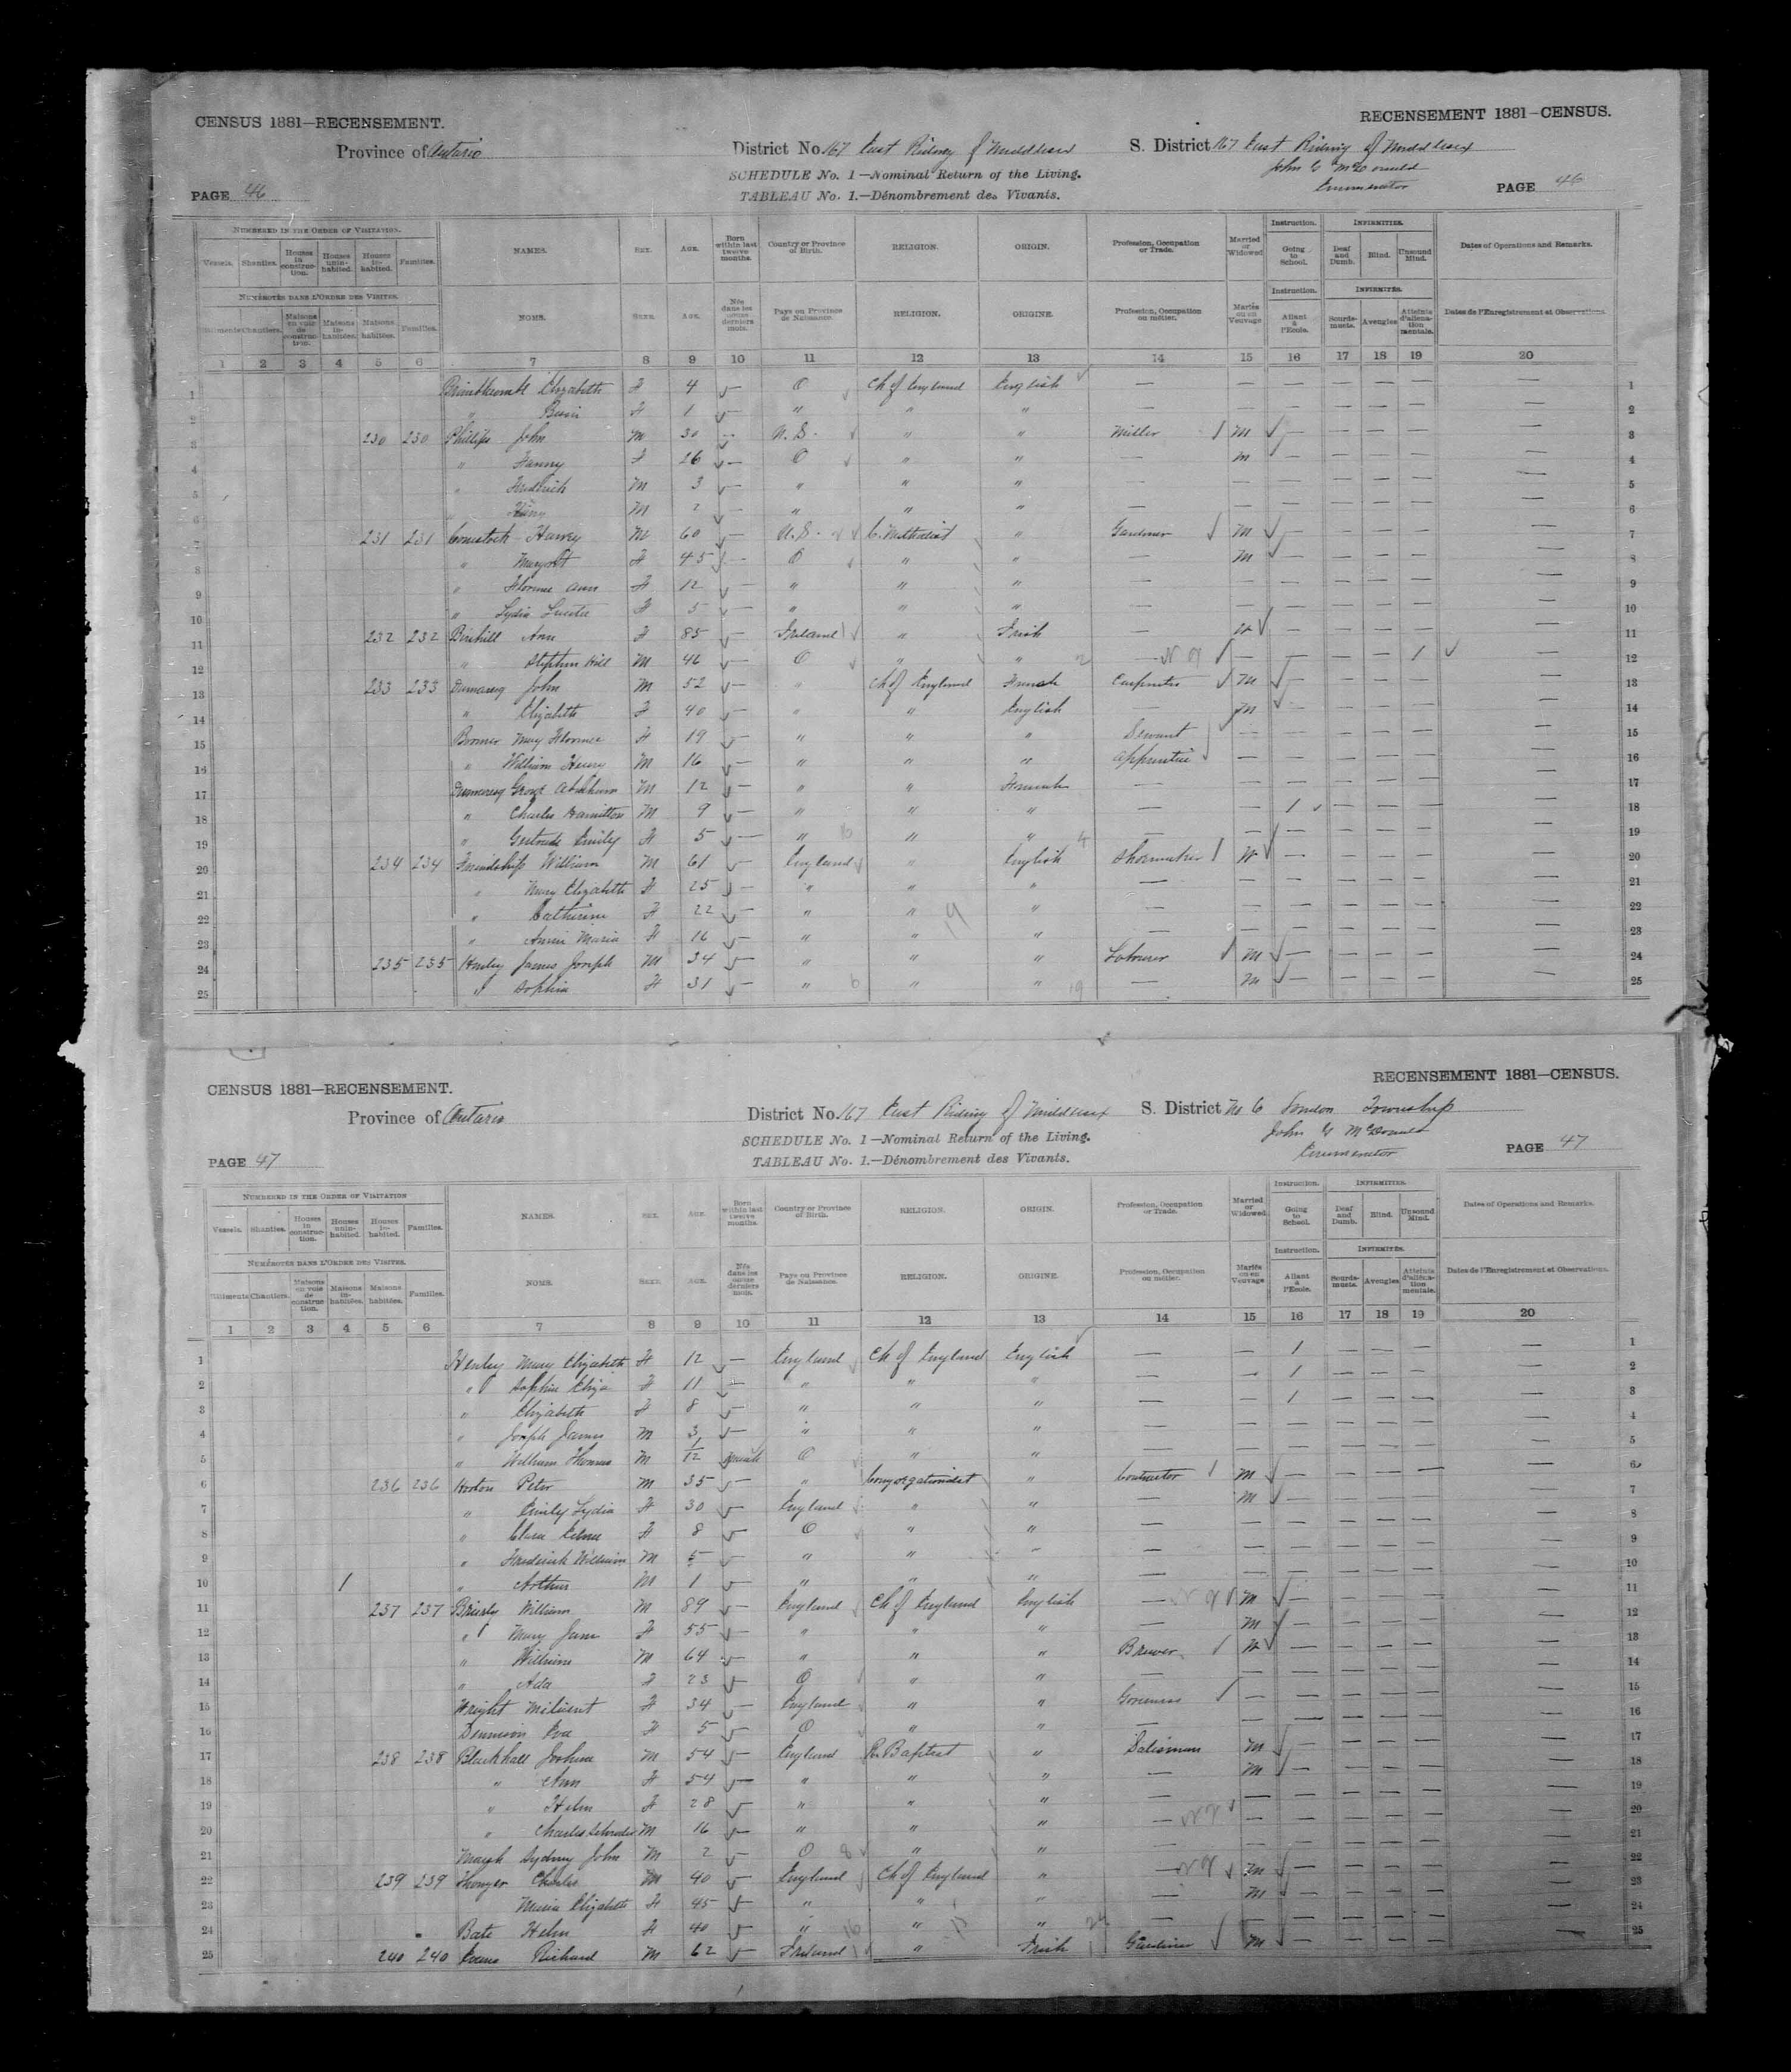 CENSUS 1881—RECENSEMENT. RECENSEMENT 1881—CENSUS.
Province of Ontario District No. 167 East Riding of Middlesex S. District 167 East Riding of Middlesex
John G McDonald
SCHEDULE No. 1—Nominal Return of the Living.
Enumerator
PAGE 46 TABLEAU No. 1.—Dénombrement des Vivants. PAGE 46
NUMBERED IN THE ORDER OF VISITATION. NAMES. SEX. AGE. Born within last twelve months. Country or Province of Birth. RELIGION. ORIGIN. Profession, Occupation or Trade. Married or Widowed Instruction. Going to School. INFIRMITIES. Deaf and Dumb. Blind. Unsound Mind. Dates of Operations and Remarks.
Vessels. Shanties. Houses in construction. Houses uninhabited. Houses inhabited. Families.
NUMÉROTÉS DANS L'ORDRE DES VISITES. NOMS. SEXE. AGE. Nés dans les onze derniers mois. Pays ou Province de Naissance. RELIGION. ORIGINE. Profession, Occupation ou métier. Mariés ou en Veuvage Instruction. Allant à l'École. INFIRMITÉS. Sourds-muets. Aveugles Atteints d'aliénation mentale. Dates de l'Enregistrement et Observations.
Bâtiments Chantiers. Maisons en voie de construction. Maisons inhabitées. Maisons habitées. Familles.
1 2 3 4 5 6 7 8 9 10 11 12 13 14 15 16 17 18 19 20
1 Elizabeth F 4 — O Ch of England English — — — — — — — 1
2 " F 1 — " " " — — — — — — — 2
3 230 230 Phillips John M 30 — U.S. " " Miller M — — — — — 3
4 " Fanny F 26 — O " " — M — — — — — 4
5 " Fredrick M 3 — " " " — — — — — — — 5
6 " M 2 — " " " — — — — — — — 6
7 231 231 Comstock Harvey M 60 — U.S. C. Methodist " Gardner M — — — — — 7
8 " Margret F 45 — O " " — M — — — — — 8
9 " Florence Ann F 12 — " " " — — — — — — — 9
10 " Lydia F 5 — " " " — — — — — — — 10
11 232 232 Ann F 85 — Ireland " Irish — W — — — — — 11
12 " Stephen Hill M 46 — O " " 2 — — — — — 1 — 12
13 233 233 Dumaresq John M 52 — " Ch of England French Carpenter M — — — — — 13
14 " Elizabeth F 40 — " " English — M — — — — — 14
15 Mary Florence F 19 — " " " Servant — — — — — — 15
16 " William Henry M 16 — " " " Apprentice — — — — — — 16
17 Dumaresq George Abraham M 12 — " " French — — — — — — — 17
18 " Charles Hamilton M 9 — " " " — — 1 — — — — 18
19 " Gertrude Emily F 5 — " " " 4 — — — — — — — 19
20 234 234 Friendship William M 61 — England " English Shoemaker W — — — — — 20
21 " Mary Elizabeth F 25 — " " " — — — — — — — 21
22 " Catherine F 22 — " " " — — — — — — — 22
23 " Annie Maria F 16 — " " " — — — — — — — 23
24 235 235 Henley James Joseph M 34 — " " " Labourer M — — — — — 24
25 " Sophia F 31 — " 6 " " 19 — M — — — — — 25
CENSUS 1881—RECENSEMENT. RECENSEMENT 1881—CENSUS.
Province of Ontario District No. 167 East Riding of Middlesex S. District No 6 London Township
John G McDonald
SCHEDULE No. 1—Nominal Return of the Living.
Enumerator
PAGE 47 TABLEAU No. 1.—Dénombrement des Vivants. PAGE 47
NUMBERED IN THE ORDER OF VISITATION NAMES. SEX. AGE. Born within last twelve months. Country or Province of Birth. RELIGION. ORIGIN. Profession, Occupation or Trade. Married or Widowed Instruction. Going to School. INFIRMITIES. Deaf and Dumb. Blind. Unsound Mind. Dates of Operations and Remarks.
Vessels. Shanties. Houses in construction. Houses uninhabited. Houses inhabited. Families.
NUMÉROTÉS DANS L'ORDRE DES VISITES. NOMS. SEXE. AGE. Nés dans les onze derniers mois. Pays ou Province de Naissance. RELIGION. ORIGINE. Profession, Occupation ou métier. Mariés ou en Veuvage Instruction. Allant à l'École. INFIRMITÉS. Sourds-muets. Aveugles Atteints d'aliénation mentale. Dates de l'Enregistrement et Observations.
Bâtiments Chantiers. Maisons en voie de construction. Maisons inhabitées. Maisons habitées. Familles.
1 2 3 4 5 6 7 8 9 10 11 12 13 14 15 16 17 18 19 20
1 Henley Mary Elizabeth F 12 — England Ch of England English — — 1 — — — — 1
2 " Sophia Eliza F 11 — " " " — — 1 — — — — 2
3 " Elizabeth F 8 — " " " — — 1 — — — — 3
4 " Joseph James M 3 — " " " — — — — — — — 4
5 " William Thomas M 1/12 March O " " — — — — — — — 5
6 236 236 Horton Peter M 35 — " Congregationalist " Contractor M — — — — — 6
7 " Emily Lydia F 30 — England " " — M — — — — — 7
8 " Clara Edna F 8 — O " " — — — — — — — 8
9 " Fredrick William M 5 — " " " — — — — — — — 9
10 1 " Arthur M 1 — " " " — — — — — — — 10
11 237 237 William M 89 — England Ch of England English — M — — — — — 11
12 " Mary Jane F 55 — " " " — M — — — — — 12
13 " William M 64 — " " " Brewer W — — — — — 13
14 " Ada F 23 — O " " — — — — — — — 14
15 Wright Milicent F 34 — England " " Governess — — — — — — 15
16 Dennison Eva F 5 — O " " — — — — — — — 16
17 238 238 Blackhall Joshua M 54 — England R. Baptist " Salesman M — — — — — 17
18 " Ann F 54 — " " " — M — — — — — 18
19 " Helen F 28 — " " " — — — — — — — 19
20 " Charles M 16 — " " " — — — — — — — 20
21 Marsh Sydney John M 2 — O 8 " " — — — — — — — 21
22 239 239 Charles M 40 — England Ch of England " — M — — — — — 22
23 Maria Elizabeth F 45 — " " " — M — — — — — 23
24 Bate Helen F 40 — " 16 " " — — — — — — — 24
25 240 240 Evans Richard M 62 — Ireland " Irish Gardiner M — — — — — 25